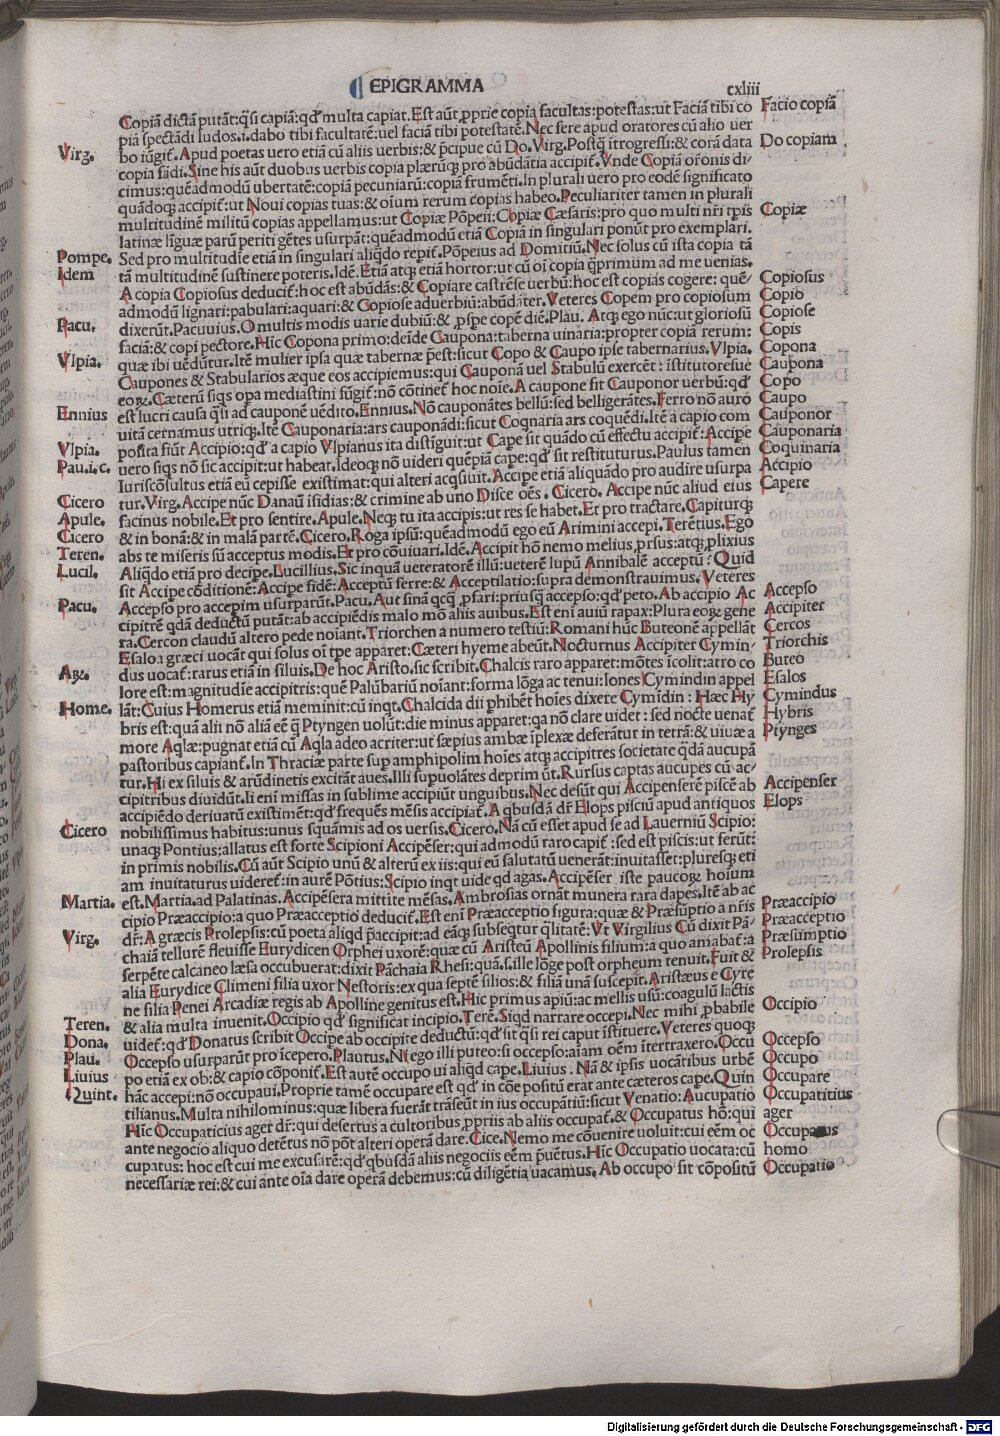 EPIGRAMMA
cxliii
Copiā dictā putāt: q̄si capiā: qđ multa capiat. Est aūt ꝓprie copia facultas: potestas: ut Faciā tibi co
piā spectādi ludos .i. dabo tibi facultatē: uel faciā tibi potestatē. Nec fere apud oratores cū alio uer
bo iūgit̄. Apud poetas uero etiā cū aliis uerbis: & p̄cipue cū Do. Virg. Postq̄ ītrogressi: & corā data
copia fādi. Sine his aūt duobus uerbis copia plærūqꝫ pro abūdātia accipit̄. Vnde Copiā orōnis di-
cimus: quēadmodū ubertatē: copiā pecuniarū: copiā frumēti. In plurali uero pro eodē significato
quādoqꝫ accipit̄: ut Noui copias tuas: & oium rerum copias habeo. Peculiariter tamen in plurali
multitudinē militū copias appellamus: ut Copiæ Pōpeii: Copiæ Cæsaris: pro quo multi nr̄i tp̄is
latinæ līguæ parū periti gētes usurpāt: quēadmodū etiā Copiā in singulari ponūt pro exemplari.
Sed pro multitudīe etiā in singulari aliq̄do repit̄. Pōpeius ad Domitiū. Nec solus cū ista copia tā
tā multitudinē sustinere poteris. Idē. Etiā atqꝫ etiā hortor: ut cū oī copia q̄primum ad me uenias.
A copia Copiosus deducit̄: hoc est abūdās: & Copiare castrēse uerbū: hoc est copias cogere: quē-
admodū lignari: pabulari: aquari: & Copiose aduerbiū: abūdāter. Veteres Copem pro copiosum
dixerūt. Pacuuius. O multis modis uarie dubiū: & ꝓspe copē diē. Plau. Atqꝫ ego nūc: ut gloriosū
faciā: & copi pectore. Hīc Copona primo: deīde Caupona: taberna uinaria: propter copiā rerum:
quæ ibi uēdūtur. Itē mulier ipsa quæ tabernæ p̄est: sicut Copo & Caupo ipse tabernarius. Vlpia.
Caupones & Stabularios æque eos accipiemus: qui Cauponā uel Stabulū exercēt: īstitutoresue
eoꝝ. Cæterū siqs opa mediastini fūgit̄: nō cōtinet̄ hoc noīe. A caupone fit Cauponor uerbū: qđ
est lucri causa q̄si ad cauponē uēdito. Ennius. Nō cauponātes bellū: sed belligerātes. Ferro nō auro
uitā cernamus utriqꝫ. Itē Cauponaria: ars cauponādi: sicut Coqnaria ars coquēdi. Itē a capio com
posita fiūt Accipio: qđ a capio Vlpianus ita distiguit: ut Cape sit quādo cū effectu accipit̄: Accipe
uero siqs nō sic accipit: ut habeat. Ideoqꝫ nō uideri quēpiā cape: qđ sit restituturus. Paulus tamen
Iuriscōsultus etiā eū cepisse existimat: qui alteri acqsiuit. Accipe etiā aliquādo pro audire usurpa
tur. Virg. Accipe nūc Danaū īsidias: & crimine ab uno Disce oēs. Cicero. Accipe nūc aliud eius
facinus nobile. Et pro sentire. Apule. Neqꝫ tu ita accipis: ut res se habet. Et pro tractare. Capiturqꝫ
& in bonā: & in malā partē. Cicero. Roga ipsū: quēadmodū ego eū Arimini accepi. Terētius. Ego
abs te miseris sū acceptus modis. Et pro cōuiuari. Idē. Accipit hō nemo melius ꝓrsus: atqꝫ ꝓlixius
Aliq̄do etiā pro decipe. Lucillius. Sic inquā ueteratorē illū: ueterē lupū Annibalē acceptū: Quid
sit Accipe cōditionē: Accipe fidē: Acceptū ferre: & Acceptilatio: supra demonstrauimus. Veteres
Accepso pro accepim usurparūt. Pacu. Aut sinā qcq̄ ꝓfari: priusq̄ accepso: qđ peto. Ab accipio Ac
cipitrē qđā deductū putāt: ab accipiēdis malo mō aliis auibus. Est enī auiū rapax: Plura eoꝝ gene
ra. Cercon claudū altero pede noiant. Triorchen a numero testiū: Romani hūc Buteonē appellāt
Esaloa græci uocāt qui solus oī tpe apparet: Cæteri hyeme abeūt. Nocturnus Accipiter Cymin-
dus uocat̄: rarus etiā in siluis. De hoc Aristo. sic scribit. Chalcis raro apparet: mōtes īcolit: atro co
lore est: magnitudīe accipitris: quē Palūbariū noiant: forma lōga ac tenui: Iones Cymindin appel
lāt: Cuius Homerus etiā meminit: cū inqt. Chalcida dii phibēt hoīes dixere Cymīdin: Hæc Hy
bris est: quā alii nō aliā eē q̄ Ptyngen uolūt: die minus apparet: qa nō clare uidet: sed nocte uenat̄
more Aqlæ: pugnat etiā cū Aqla adeo acriter: ut sæpius ambæ īplexæ deferātur in terrā: & uiuæ a
pastoribus capiant̄. In Thraciæ parte sup amphipolim hoīes atqꝫ accipitres societate qđā aucupā
tur. Hi ex siluis & arūdinetis excitāt aues. Illi supuolātes deprimūt. Rursus captas aucupes cū ac-
cipitribus diuidūt. Ii enī missas in sublime accipiūt unguibus. Nec desūt qui Accipenserē piscē ab
accipiēdo deriuatū existimēt: qđ frequēs mēsis accipiat̄. A qbusdā dr̄ Elops pisciū apud antiquos
nobilissimus habitus: unus squāmis ad os uersis. Cicero. Nā cū esset apud se ad Lauerniū Scipio:
unaqꝫ Pontius: allatus est forte Scipioni Accipēser: qui admodū raro capit̄: sed est piscis: ut ferūt:
in primis nobilis. Cū aūt Scipio unū & alterū ex iis: qui eū salutatū uenerāt: inuitasset: pluresqꝫ eti
am inuitaturus uideret̄: in aurē Pōtius: Scipio inqt uide qd agas. Accipēser iste paucoꝝ hoium
est. Martia. ad Palatinas. Accipēsera mittite mēsas. Ambrosias ornāt munera rara dapes. Itē ab ac
cipio Præaccipio: a quo Præacceptio deducit̄. Est enī Præacceptio figura: quæ & Præsūptio a nr̄is
dr̄: A græcis Prolepsis: cū poeta aliqd p̄accipit: ad eāqꝫ subseqtur qlitatē: Vt Virgilius Cū dixit Pā-
chaiā tellurē fleuisse Eurydicen Orphei uxorē: quæ cū Aristeū Apollinis filium: a quo amabat̄: a
serpēte calcaneo læsa occubuerat: dixit Pāchaia Rhesi: quā. s. ille lōge post orpheum tenuit. Fuit &
alia Eurydice Climeni filia uxor Nestoris: ex qua septē filios: & filiā unā suscepit. Aristæus e Cyre
ne filia Penei Arcadiæ regis ab Apolline genitus est. Hic primus apiū: ac mellis usū: coagulū lactis
& alia multa inuenit. Occipio qđ significat incipio. Terē. Siqd narrare occepi. Nec mihi ꝓbabile
uidet̄: qđ Donatus scribit Occipe ab occipite deductū: qđ sit q̄si rei caput īstituere. Veteres quoqꝫ
Occepso usurparūt pro īcepero. Plautus. Ni ego illi puteo: si occepso: aīam oēm ītertraxero. Occu
po etiā ex ob: & capio cōponit̄. Est autē occupo ui aliqd cape. Liuius. Nā & ipsis uocātibus urbē
hāc accepi: nō occupaui. Proprie tamē occupare est qđ in cōe positū erat ante cæteros cape. Quin
tilianus. Multa nihilominus: quæ libera fuerāt trāseūt in ius occupātiū: sicut Venatio: Aucupatio
Hīc Occupaticius ager dr̄: qui desertus a cultoribus ꝓpriis ab aliis occupat̄. & Occupatus hō: qui
ante negocio aliquo detētus nō pōt alteri operā dare. Cice. Nemo me cōuenire uoluit: cui eēm oc
cupatus: hoc est cui me excusarē: qđ qbusdā aliis negociis eēm p̄uētus. Hīc Occupatio uocata: cū
necessariæ rei: & cui ante oīa dare operā debemus: cū diligētia uacamus. Ab occupo sit cōpositū
Virg.
Pompe.
Idem
Pacu.
Vlpia.
Ennius
Vlpia.
Pau.i.c.
Cicero
Apule.
Cicero
Teren.
Lucil.
Pacu.
Aꝝ.
Home.
Cicero
Martia.
Virg.
Teren.
Dona.
Plau.
Liuius
Quint.
Facio copiā
Do copiam
Copiæ
Copiosus
Copio
Copiose
Copis
Copona
Caupona
Copo
Caupo
Cauponor
Cauponaria
Coquinaria
Accipio
Capere
Accepso
Accipiter
Cercos
Triorchis
Buteo
Esalos
Cymindus
Hybris
Ptynges
Accipenser
Elops
Præaccipio
Præacceptio
Præsumptio
Prolepsis
Occipio
Occepso
Occupo
Occupare
Occupatitius
ager
Occupatus
homo
Occupatio
Digitalisierung gefördert durch die Deutsche Forschungsgemeinschaft - DFG